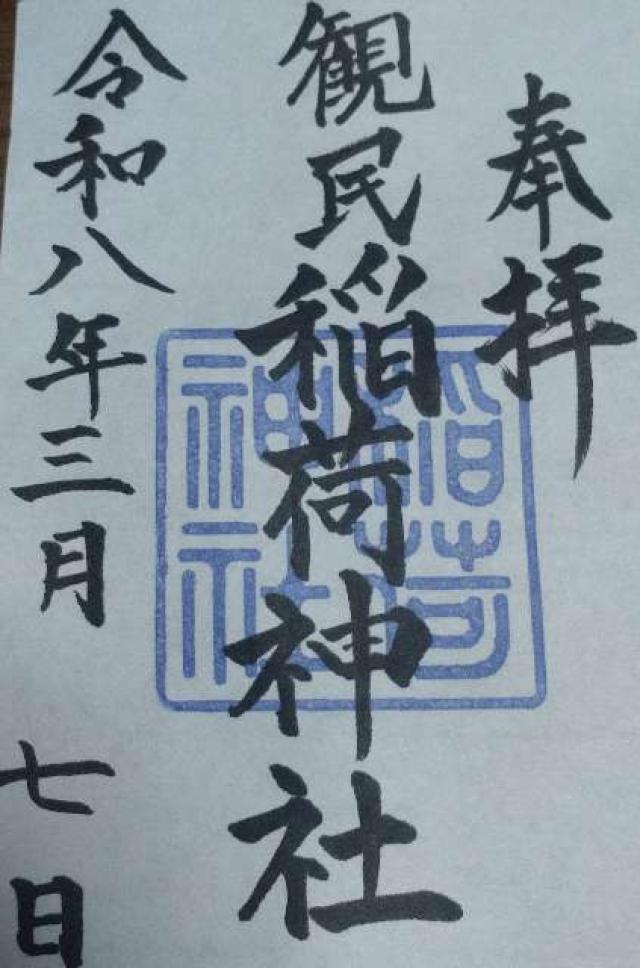 奉拝
観民稲荷神社
令和八年三月 七日
稲荷
神社